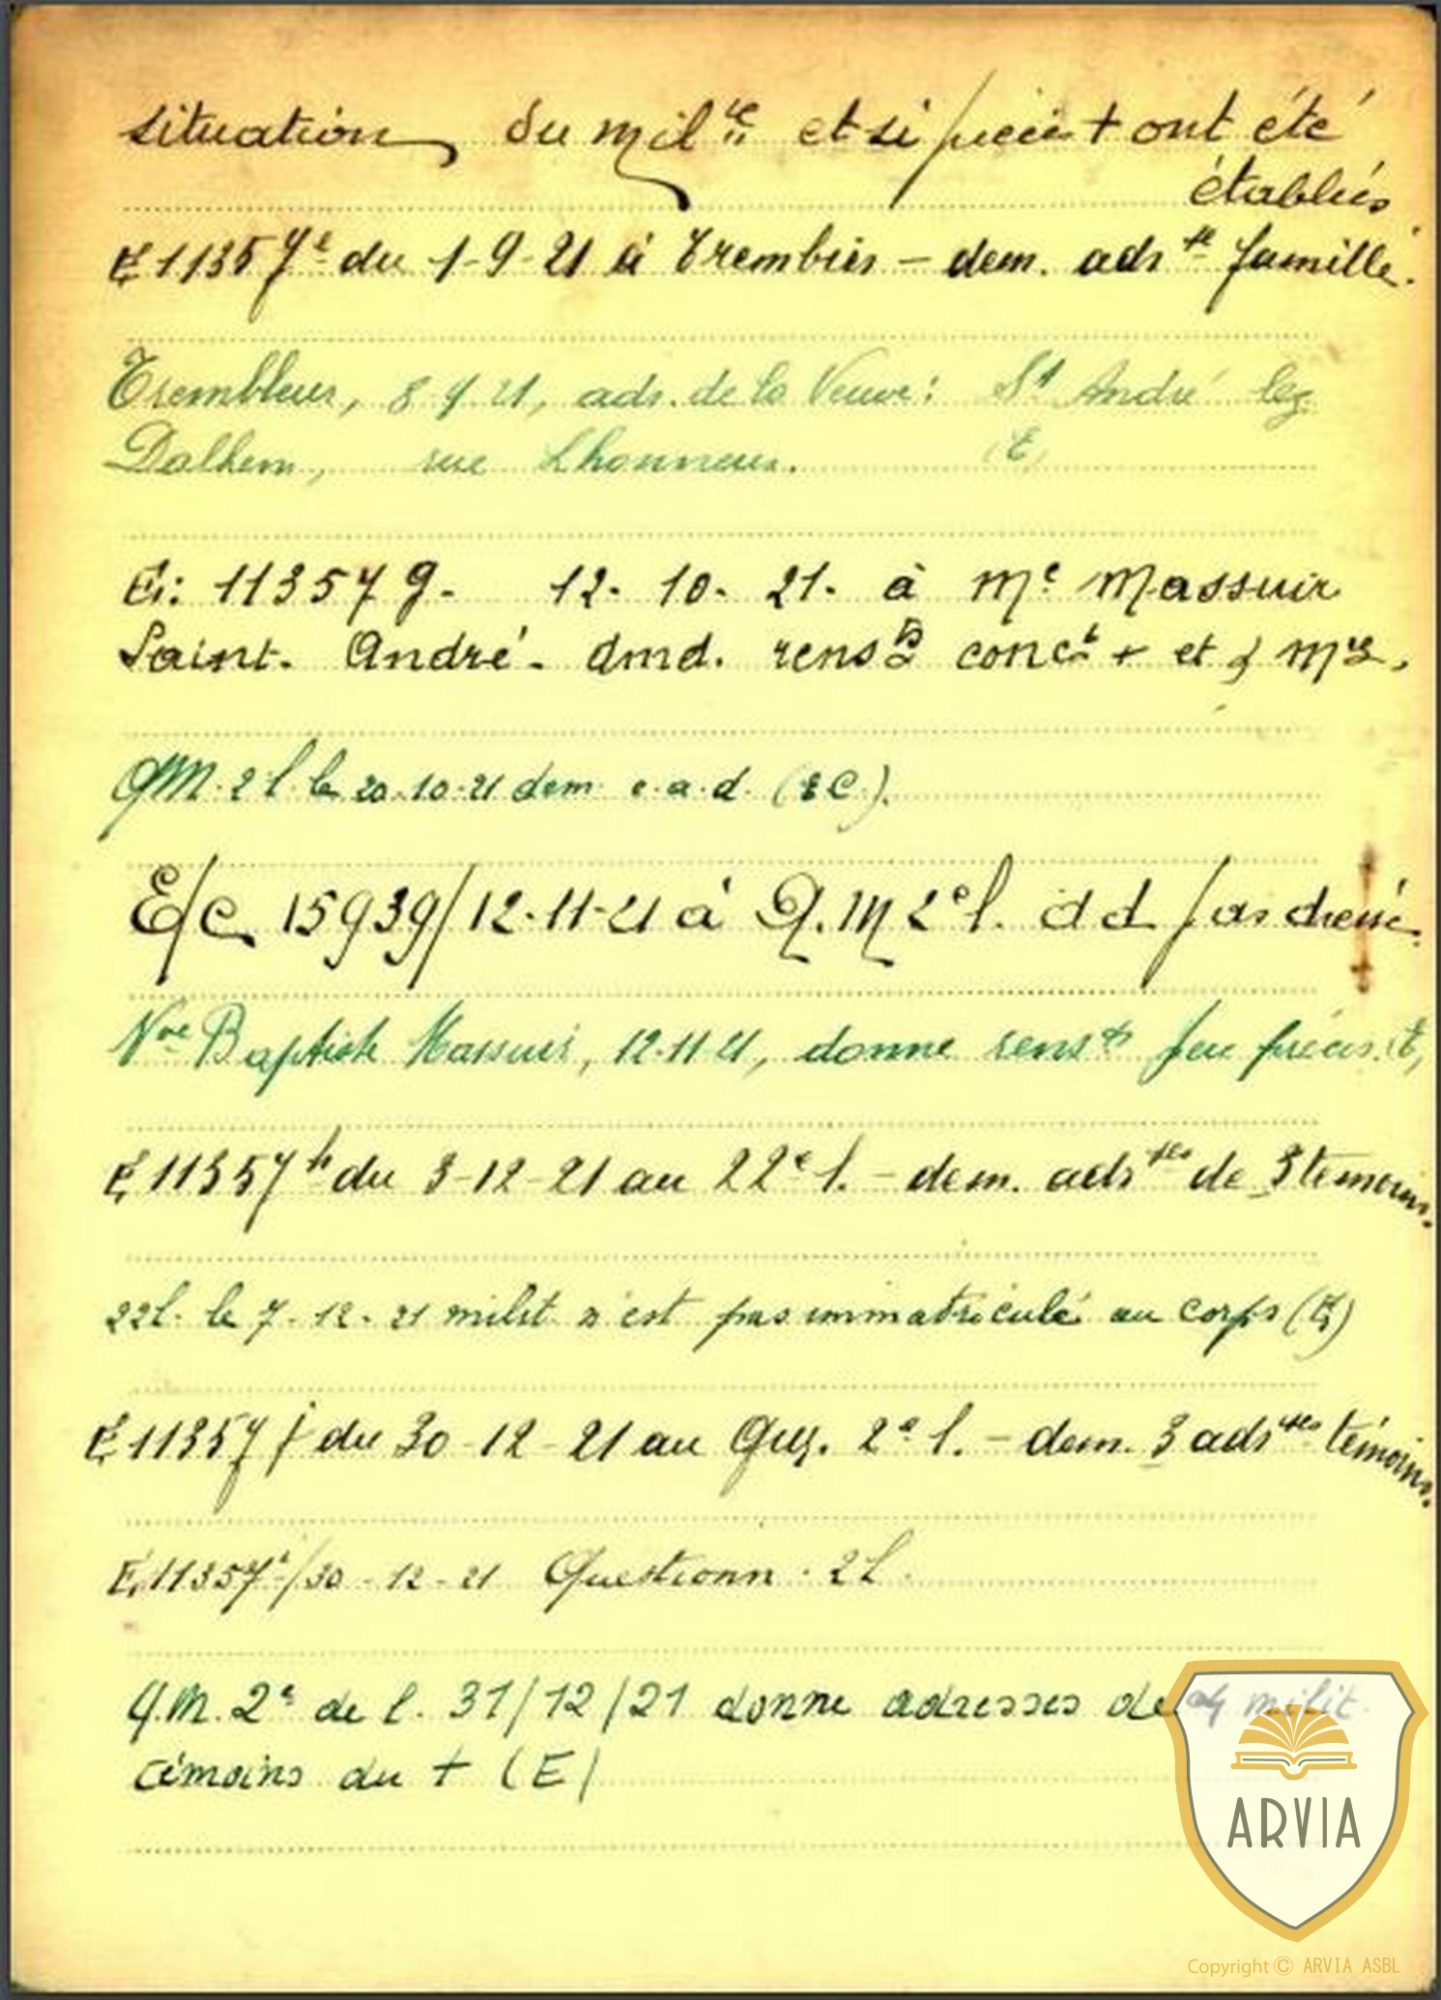 situation du mil^re et si pièces + ont été
établies
E 11357^e du 1-9-21 à Trembleur – dem. ads^se famille.
Trembleur, 8-9-21, ads. de la Veuve: S^t André lez
Dalhem, rue Lhonneux. (E)
E: 11357 g. 12. 10. 21. à M^e Massuir
Saint. André. dmd. rens^ts conc^t + et
QM. 2 l. le 20.10.21 dem. e.a.d. (EC).
E/C 15939/12-11-21 à Q.M 2^e l. d d pas dressé.
V^ve Baptiste Massuir, 12-11-21, donne rens^ts peu précis. (E)
E 11357^h du 3-12-21 au 22^e l. – dem. ads^ses de 3 témoins.
22l. le 7-12-21 milit n'est pas immatriculé au corps (E)
E 11357 j du 30-12-21 au Q.g. 2^e l. – dem. 3 ads^ses témoins.
E 11357^i/30-12-21 Questionn. 2 l.
Q.M. 2^e de l. 31/12/21 donne adresses de milit.
témoins du + (E)
ARVIA
Copyright © ARVIA ASBL